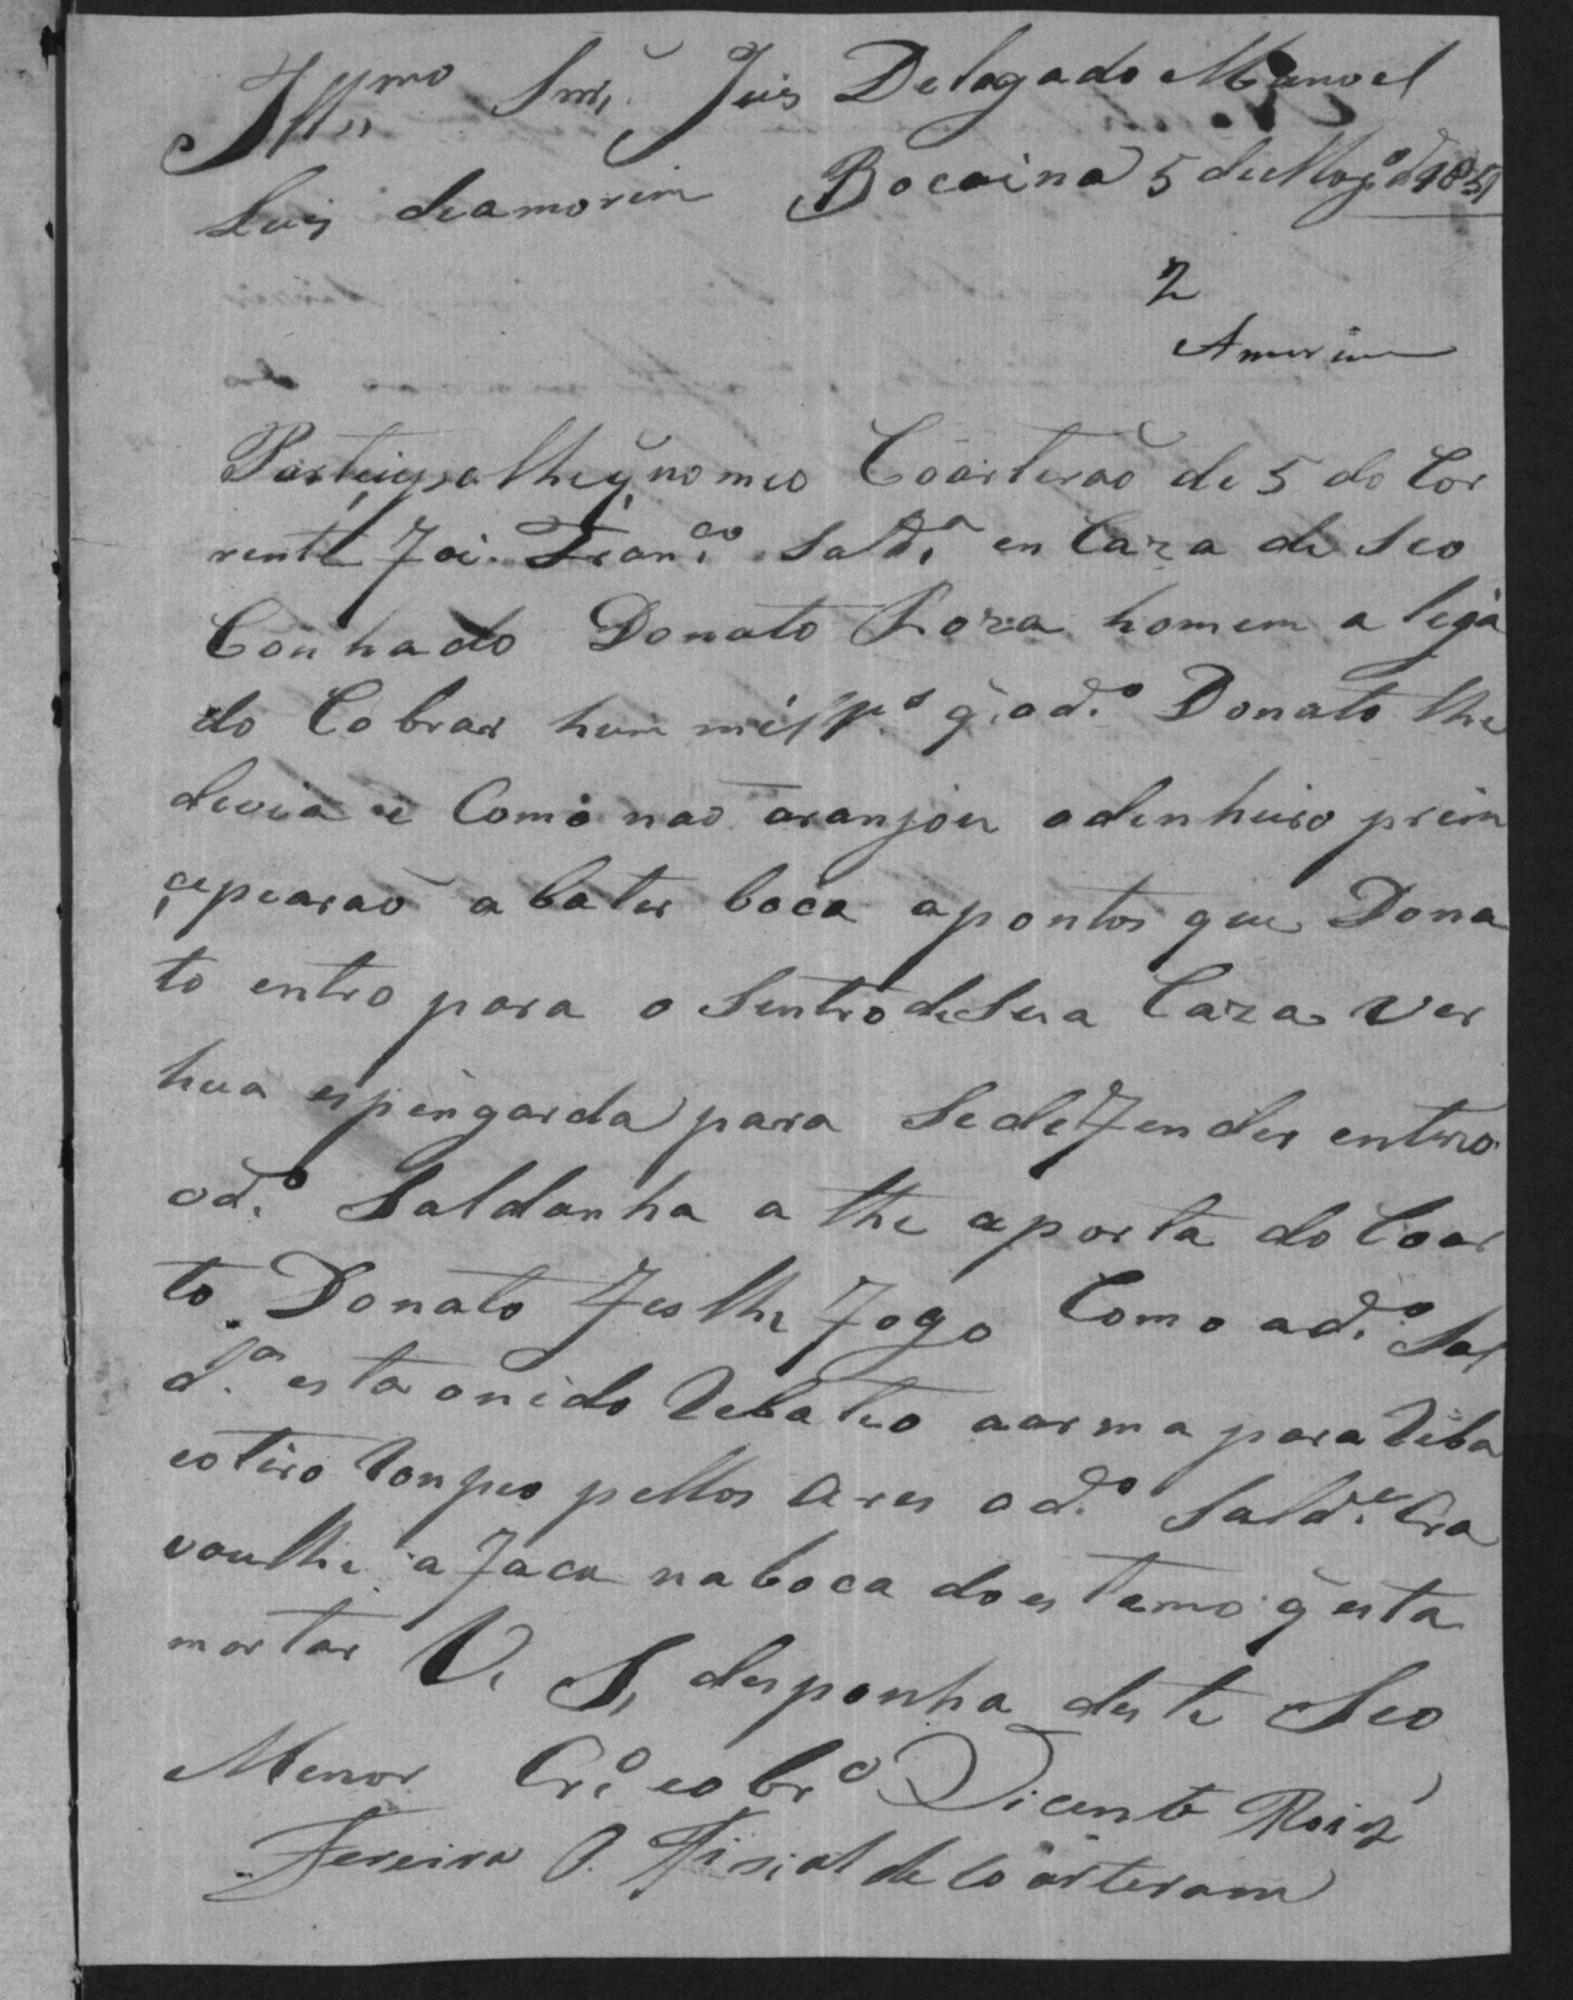 Illmo Snr. Juis Delagado Manoel
Luis deamorim Bocaina 5 de Março d 1851
2
Amorim
Partiçipo lhe q̃ no meo Coarterão de 5 do Cor
rente foi Franco Salda en Caza de Seo
Conhado Donato Roza homem a leja
do Cobrar hum mil rs q̃ o do Donato lhe
devia e Como não aranjou odenheiro prin
cepearão abater boca apontos que Dona
to entro para o Sentro deSua Caza ver
hua espengarda para Sedefender entro
odo Saldanha a the aporta do Coar
to Donato feslhe fogo Como odo Sal
da esta onido Rebateo aarma para Riba
eotiro Ronpeo pellos Ares odo Salda Cra
voulhe a faca naboca doestamo q̃ esta
mortar V. S. desponha deste Seo
Menor Cro eobro Vicente Roiz
Fereira O. Fisial de Coarteram